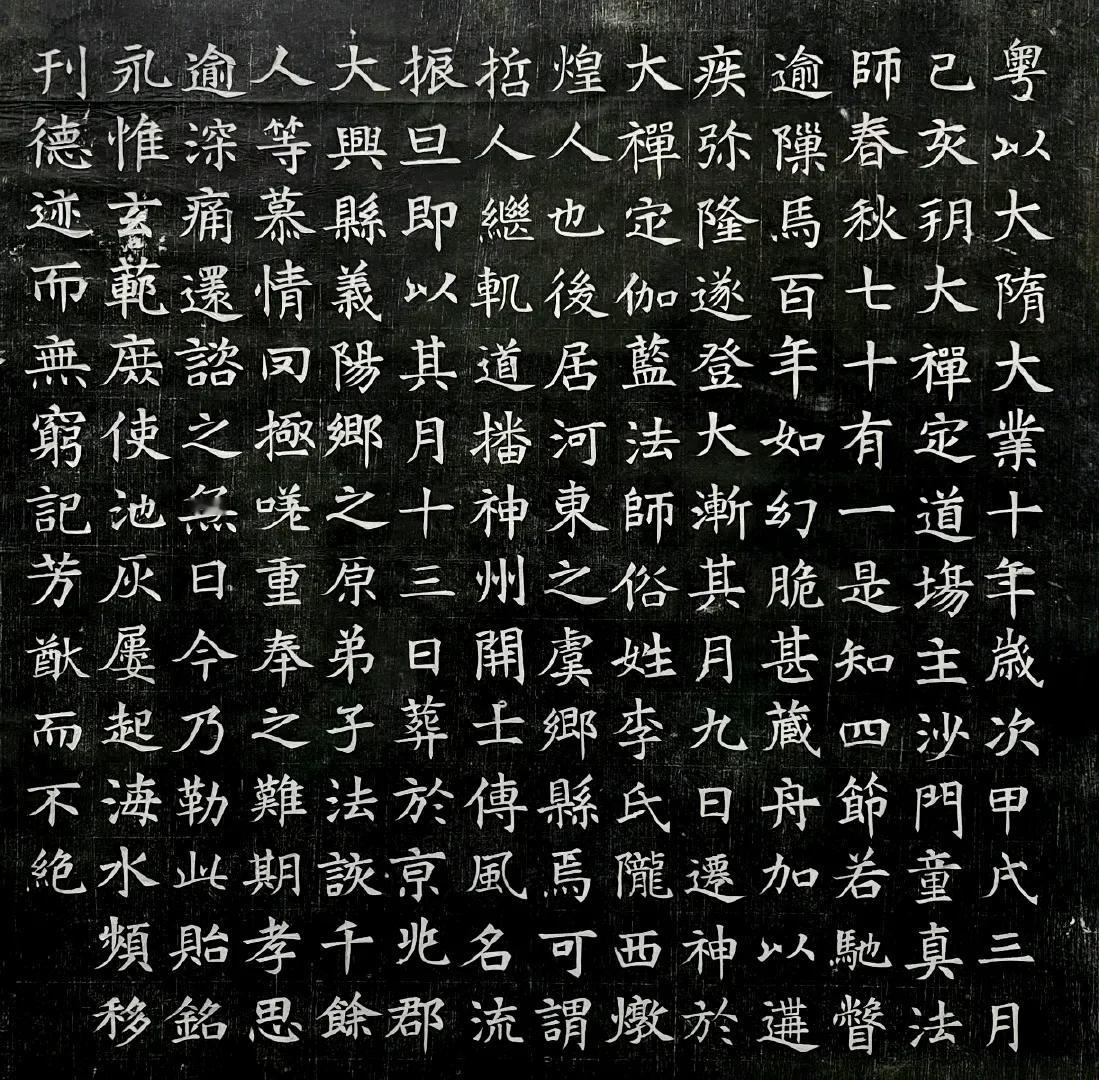 粤以大隋大業十年歲次甲戌三月
己亥朔大禪定道場主沙門童真法
師春秋七十有一是知四節若馳瞥
逾隟馬百年如幻脆甚藏舟加以遘
疾弥隆遂登大漸其月九日遷神於
大禪定伽藍法師俗姓李氏隴西燉
煌人也後居河東之虞鄉縣焉可謂
哲人繼軌道播神州開士傳風名流
振旦即以其月十三日葬於京兆郡
大興縣義陽鄉之原弟子法該千餘
人等慕情罔極嗟重奉之難期孝思
逾深痛還諮之無日今乃勒此貽銘
永惟玄範庶使池灰屢起海水頻移
刊德述而無窮記芳猷而不絕